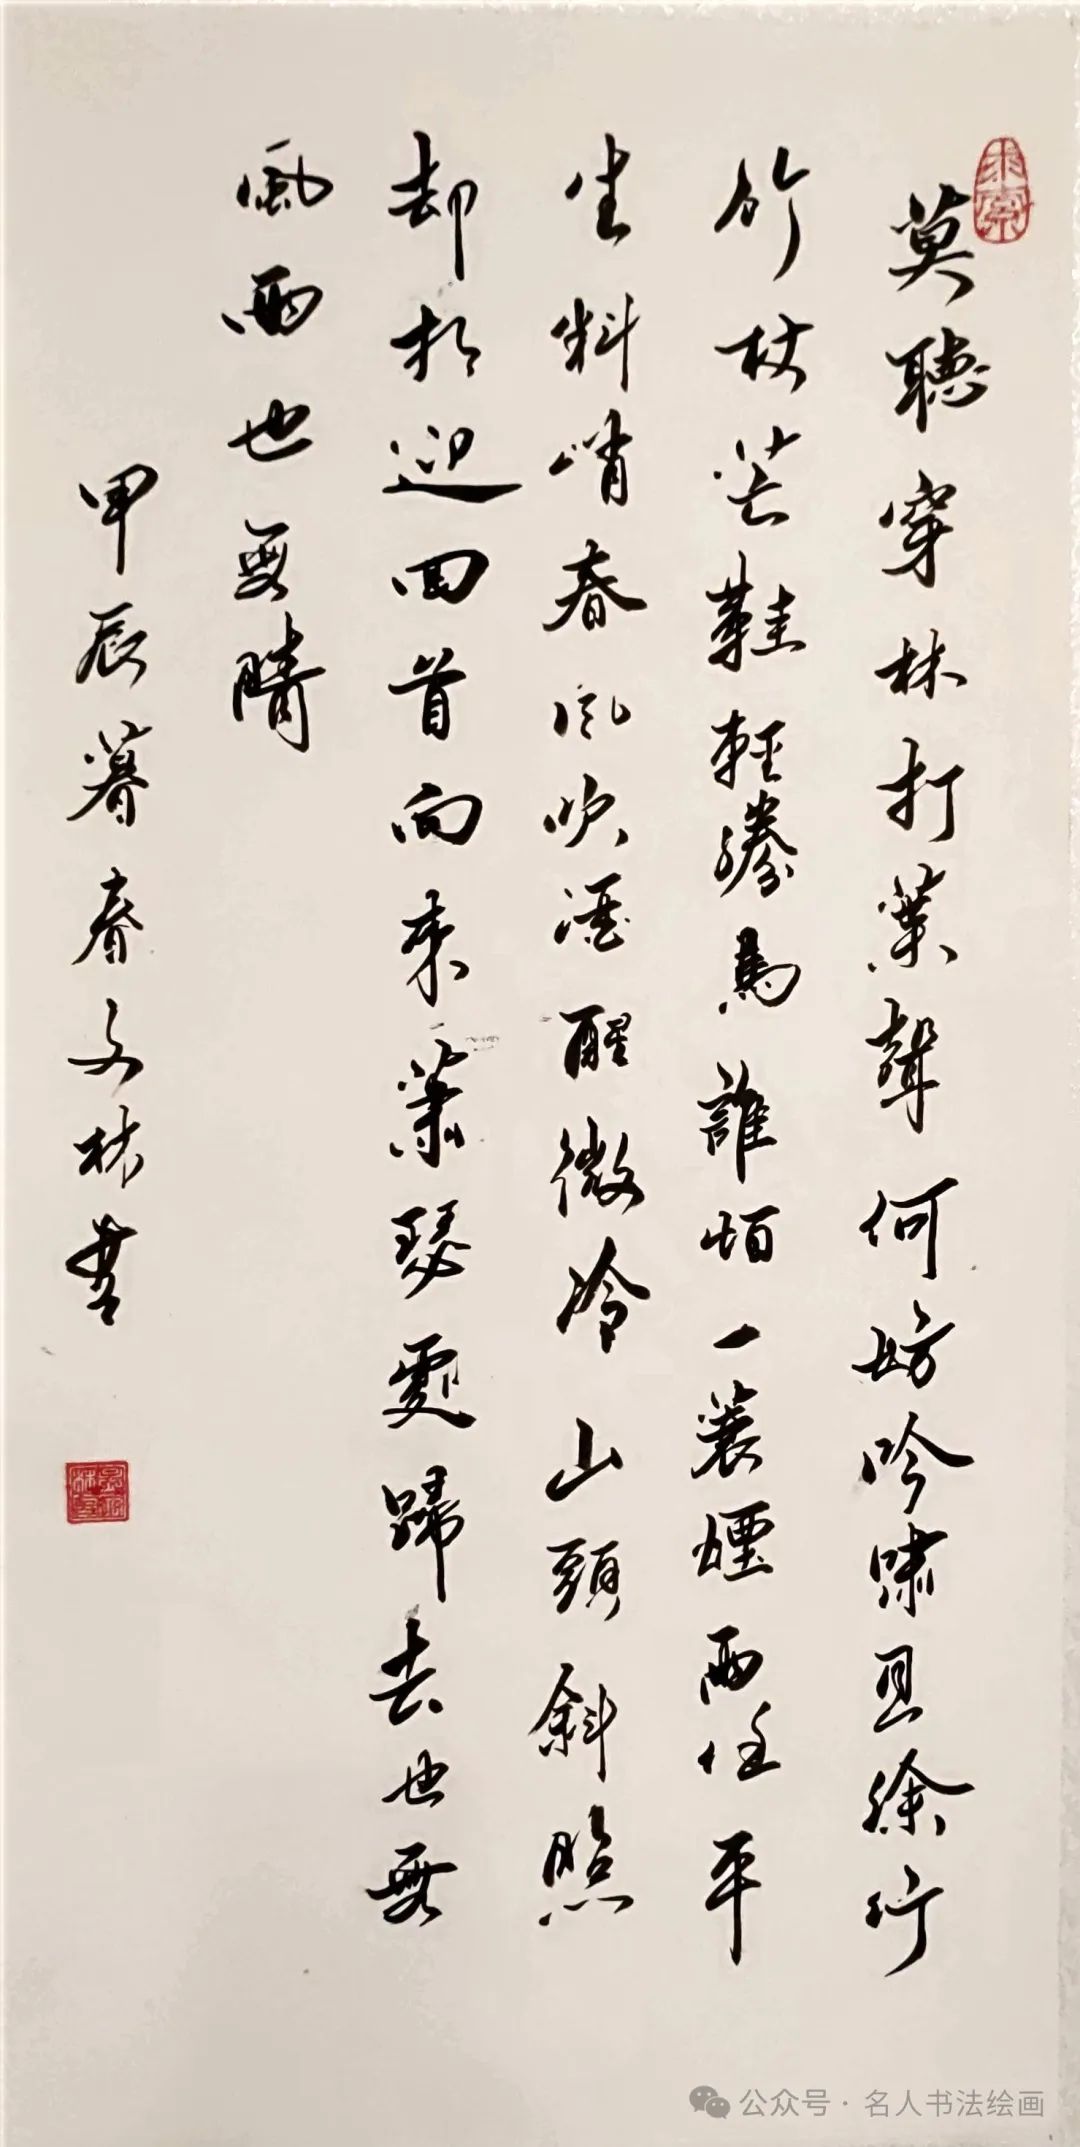 莫聽穿林打葉聲何妨吟嘯且徐行
竹杖芒鞋輕勝馬誰怕一蓑煙雨任平
生料峭春風吹酒醒微冷山頭斜照
却相迎回首向來蕭瑟處歸去也無
風雨也無晴
甲辰暮春文林書
公众号·名人书法绘画